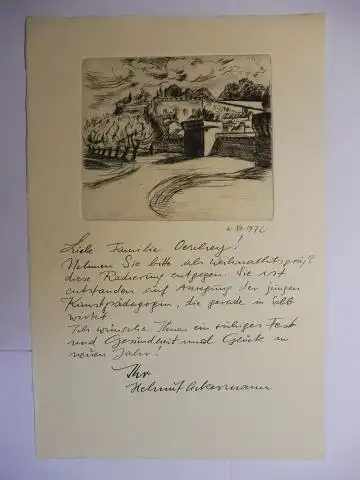 4. XII. 1976
Liebe Familie Oeschey!
Nehmen Sie bitte als Weihnachtsgruß
diese Radierung entgegen. Sie ist
entstanden auf Anregung der jungen
Kunstpädagogin, die gerade in Selb
wirket.
Ich wünsche Ihnen ein ruhiges Fest
und Gesundheit und Glück im
neuen Jahr!
Ihr
Helmut Ackermann